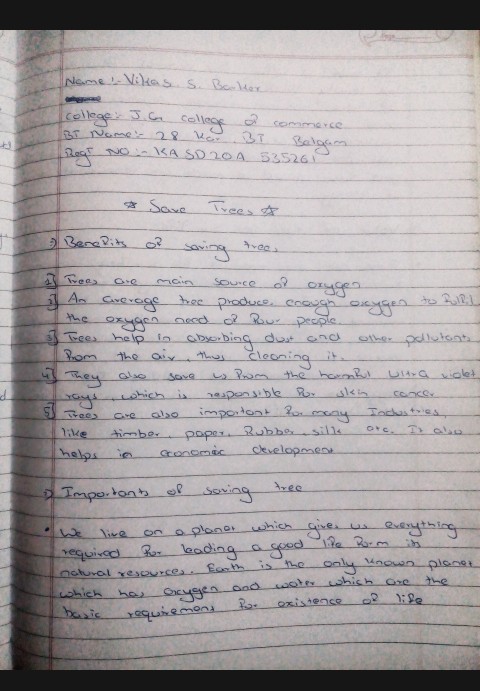 Name :- Vikas S. Barker
College :- J.G college of commerce
BT Name :- 28 Kar BT Balgam
Regt NO :- KA SD20A 535261
* Save Trees *
1) Benefits of saving tree,
1] Trees are main source of oxygen
2] An average tree produce enough oxygen to fulfil
the oxygen need of four people.
3] Trees help in absorbing dust and other pollutant
from the air, thus cleaning it.
4] They also save us from the harmful ultra violet
rays, which is responsible for skin cancer
5] Trees are also important for many Industries,
like timber, paper, Rubber, silk etc. It also
helps in economic development
1) Importants of saving tree
• We live on a planet which gives us everything
required for leading a good life form its
natural resources. Earth is the only known planet
which has oxygen and water which are the
basic requirement for existence of life